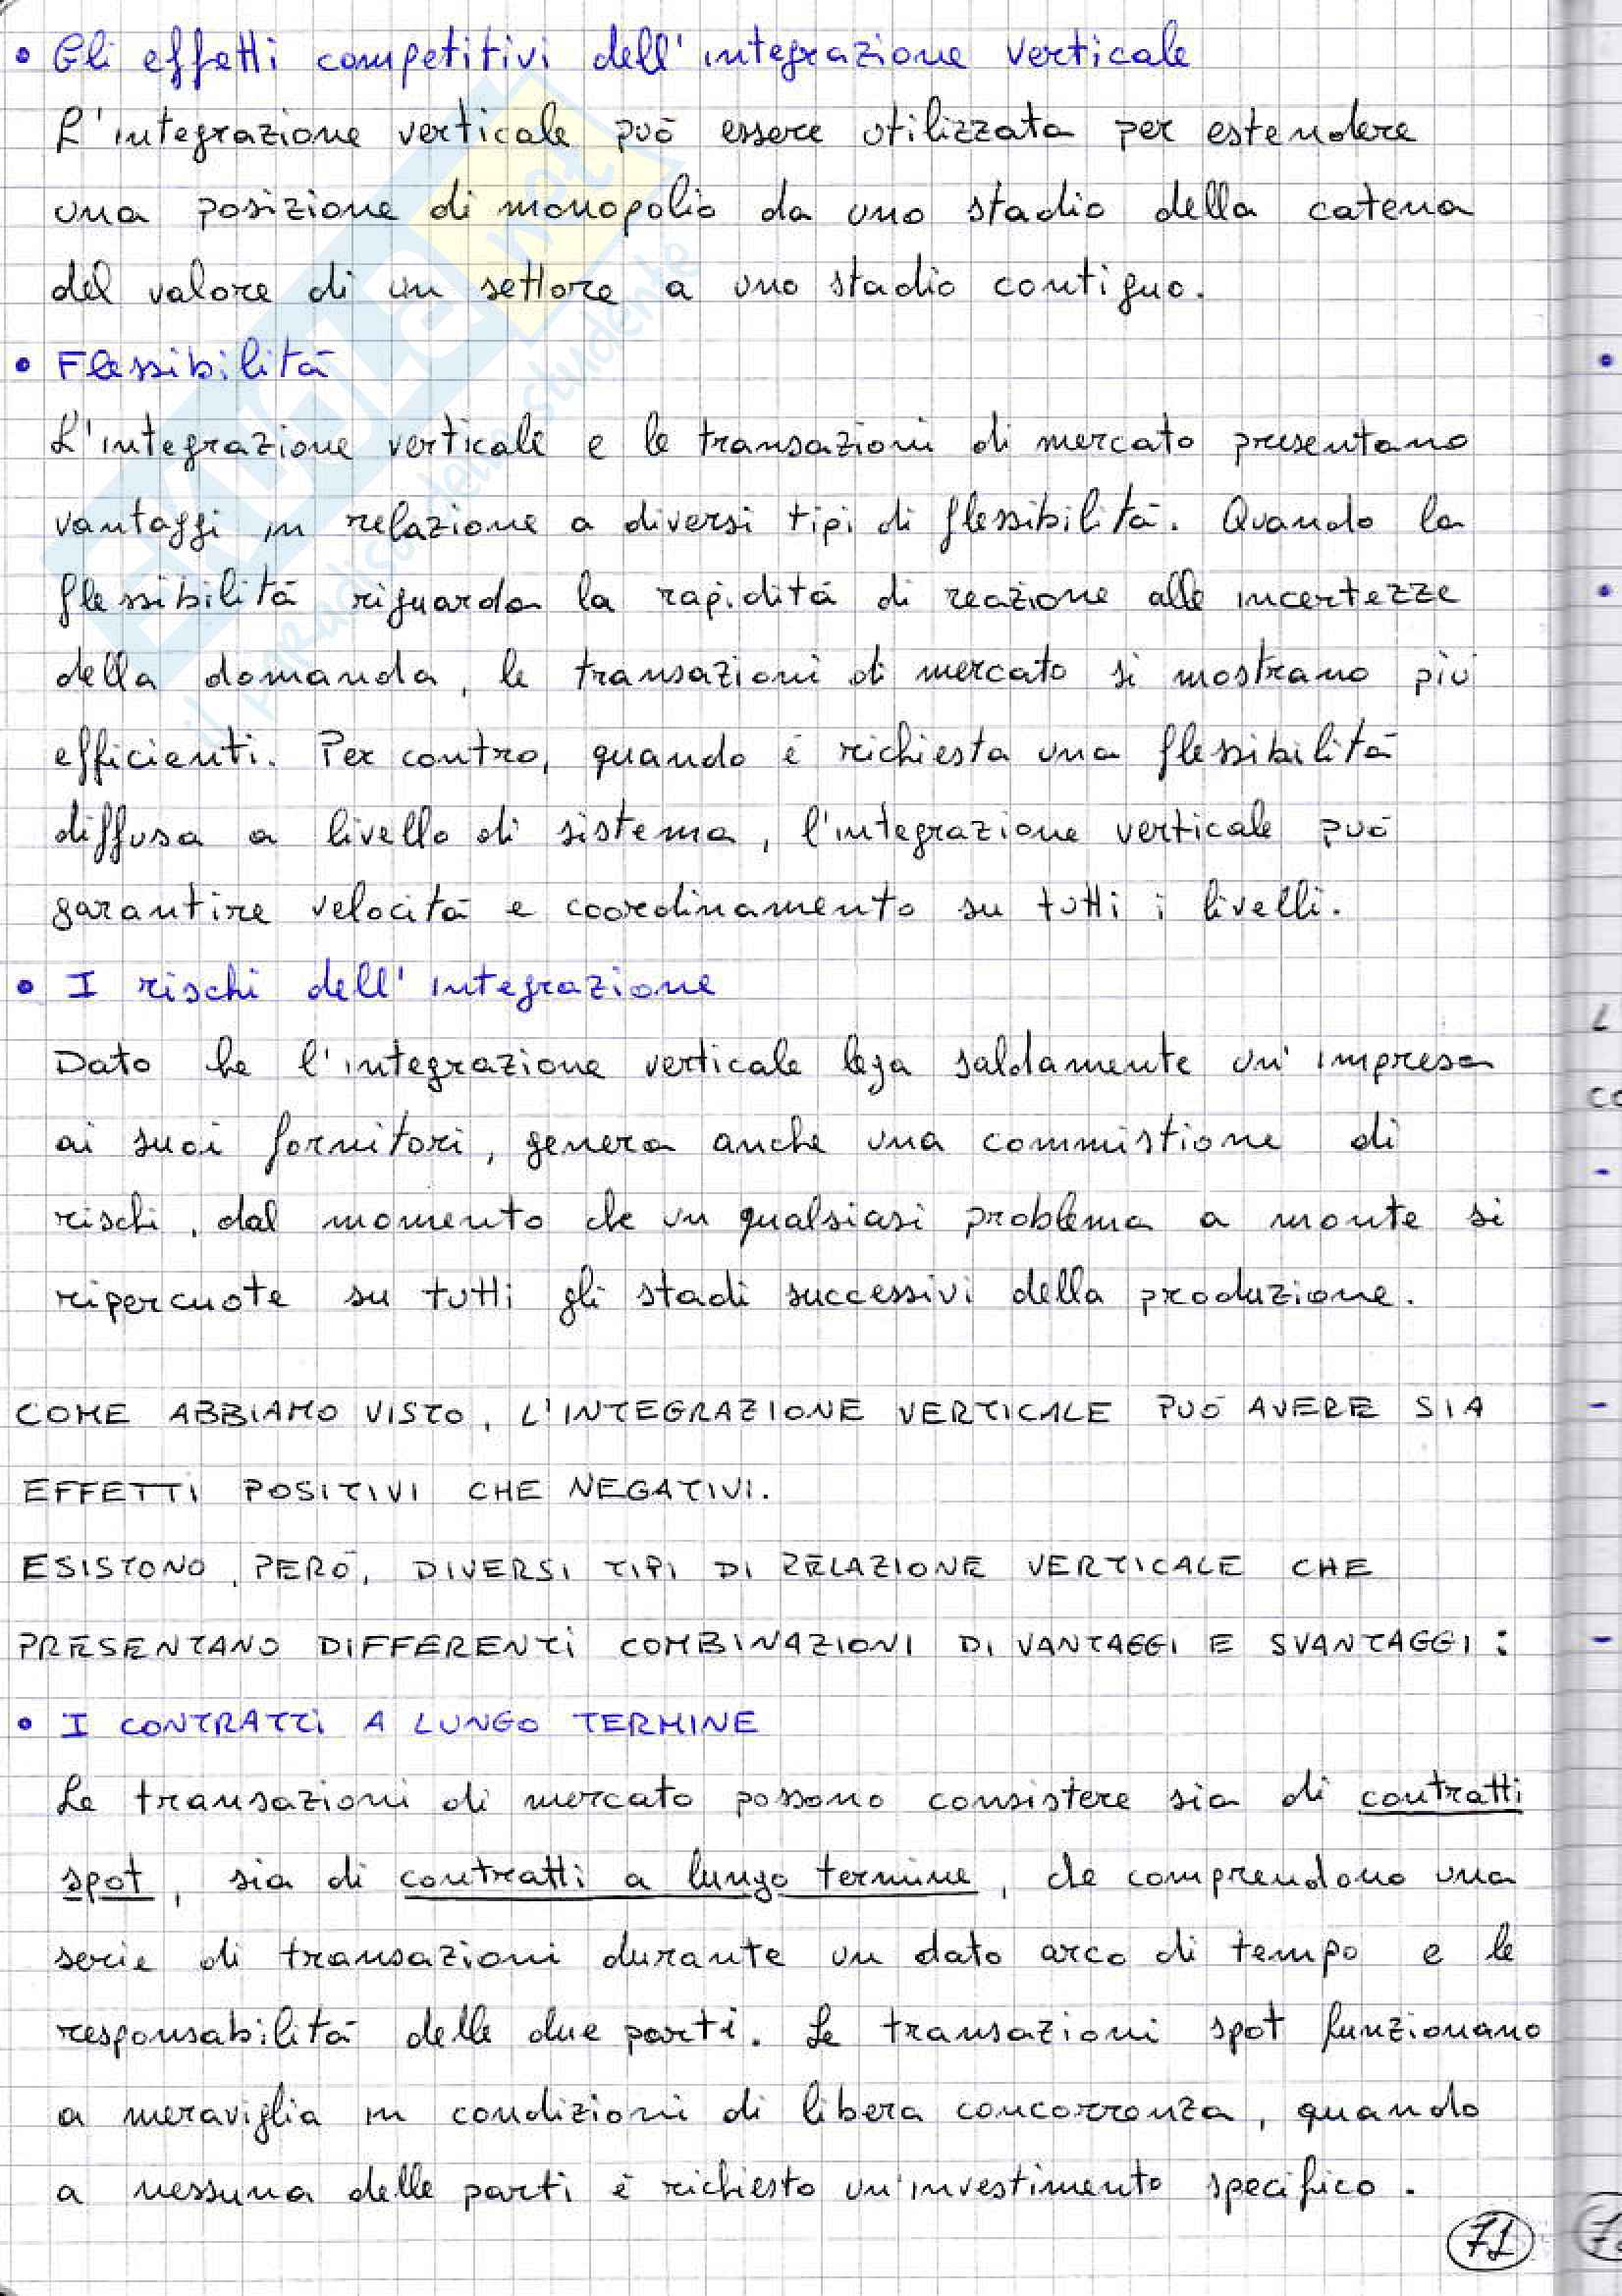 • Gli effetti competitivi dell'integrazione verticale
L'integrazione verticale può essere utilizzata per estendere
una posizione di monopolio da uno stadio della catena
del valore di un settore a uno stadio contiguo.
• Flessibilità
L'integrazione verticale e le transazioni di mercato presentano
vantaggi in relazione a diversi tipi di flessibilità. Quando la
flessibilità riguarda la rapidità di reazione alle incertezze
della domanda, le transazioni di mercato si mostrano più
efficienti. Per contro, quando è richiesta una flessibilità
diffusa a livello di sistema, l'integrazione verticale può
garantire velocità e coordinamento su tutti i livelli.
• I rischi dell'integrazione
Dato che l'integrazione verticale lega saldamente un'impresa
ai suoi fornitori, genera anche una commistione di
rischi, dal momento che un qualsiasi problema a monte si
ripercuote su tutti gli stadi successivi della produzione.
COME ABBIAMO VISTO, L'INTEGRAZIONE VERTICALE PUÒ AVERE SIA
EFFETTI POSITIVI CHE NEGATIVI.
ESISTONO, PERÒ, DIVERSI TIPI DI RELAZIONE VERTICALE CHE
PRESENTANO DIFFERENTI COMBINAZIONI DI VANTAGGI E SVANTAGGI:
• I CONTRATTI A LUNGO TERMINE
Le transazioni di mercato possono consistere sia di contratti
spot, sia di contratti a lungo termine, che comprendono una
serie di transazioni durante un dato arco di tempo e le
responsabilità delle due parti. Le transazioni spot funzionano
a meraviglia in condizioni di libera concorrenza, quando
a nessuna delle parti è richiesto un'investimento specifico.
71
SKUOLA.net
il paradiso dello studente